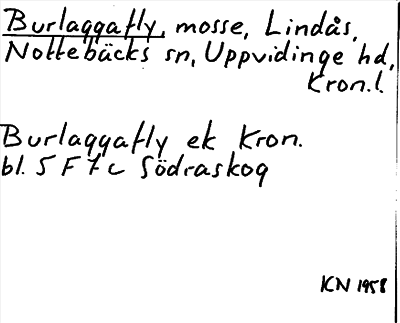 Burlaggafly, mosse, Lindås,
Nottebäcks sn, Uppvidinge hd,
Kron.l.
Burlaggafly ek Kron.
bl. 5 F 7 c Södraskog
KN 1958